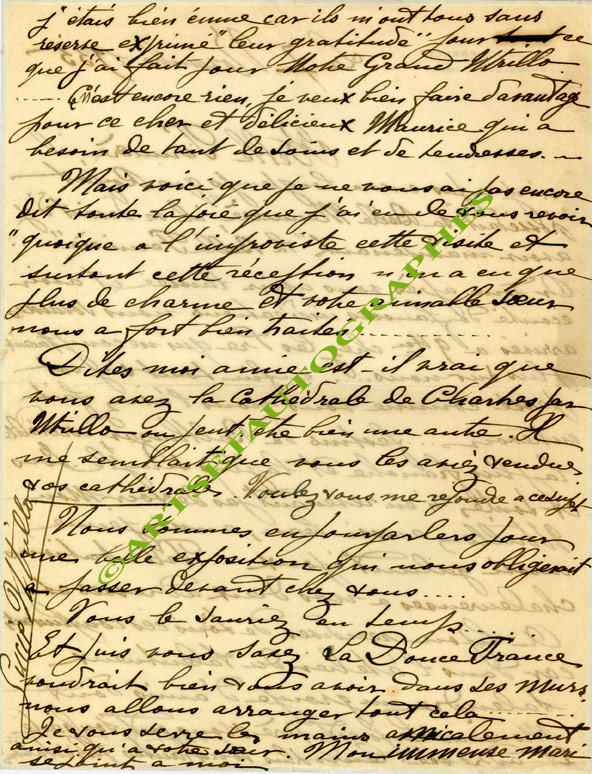 j'étais bien émue car ils m'ont tous sans
réserve exprimé "leur gratitude" pour ce
que j'ai fait pour Notre Grand Utrillo
...... C'n'est encore rien, je veux bien faire davantage
pour ce cher et délicieux Maurice qui a
besoin de tant de soins et de tendresses. —
Mais voici que je ne vous ai pas encore
dit toute la joie que j'ai eu de vous revoir
"quoique a l'improviste cette visite et
surtout cette réception n'en a eu que
plus de charme et votre aimable sœur
nous a fort bien traités ..........
Dites moi amie est-il vrai que
vous avez la cathédrale de Chartres par
Utrillo ou peut être bien une autre. Il
me semblait que vous les aviez vendues
vos cathédrales. Voulez vous me répondre a ce sujet
Nous sommes en pourparlers pour
une belle exposition qui nous obligerait
a passer devant chez vous ....
Vous le sauriez en temps ....
Et puis vous savez La Douce France
voudrait bien vous avoir dans ses murs.
nous allons arranger tout cela ........
Je vous serre les mains amicalement
ainsi qu'a votre sœur. Mon immense mari
se joint a moi
Lucie Utrillo
©ARTSETAUTOGRAPHES